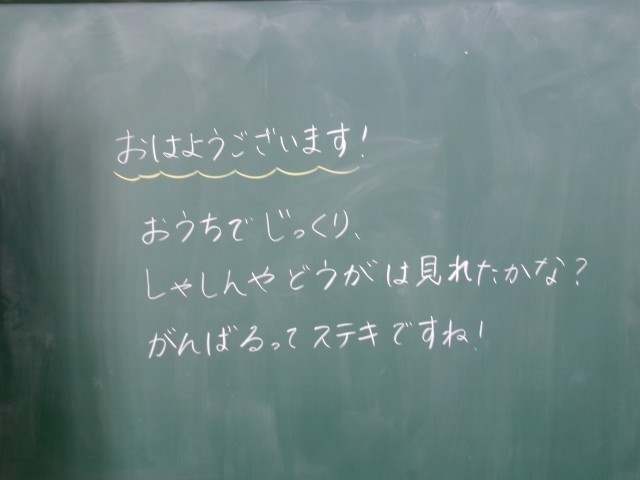 おはようございます!
おうちでじっくり、
しゃしんやどうがは見れたかな?
がんばるってステキですね!